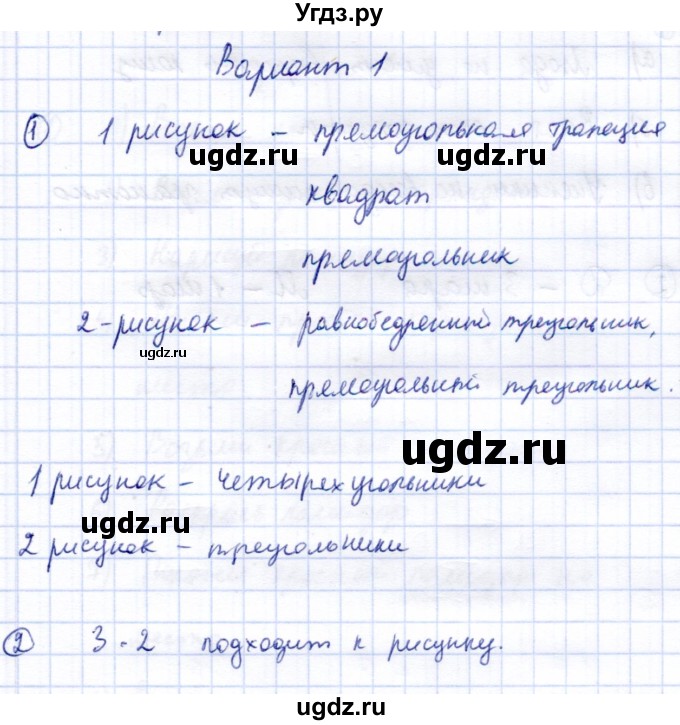 Угдз.ру
Вариант 1
① 1 рисунок – прямоугольная трапеция
ugdz.ru ugdz.ru
квадрат
прямоугольник
2-рисунок – равнобедренный треугольник,
ugdz.ru
прямоугольный треугольник.
ugdz.ru
1 рисунок – четырехугольники
ugdz.ru
2 рисунок – треугольники
② 3 · 2 подходит к рисунку.
ugdz.ru
ugdz.ru